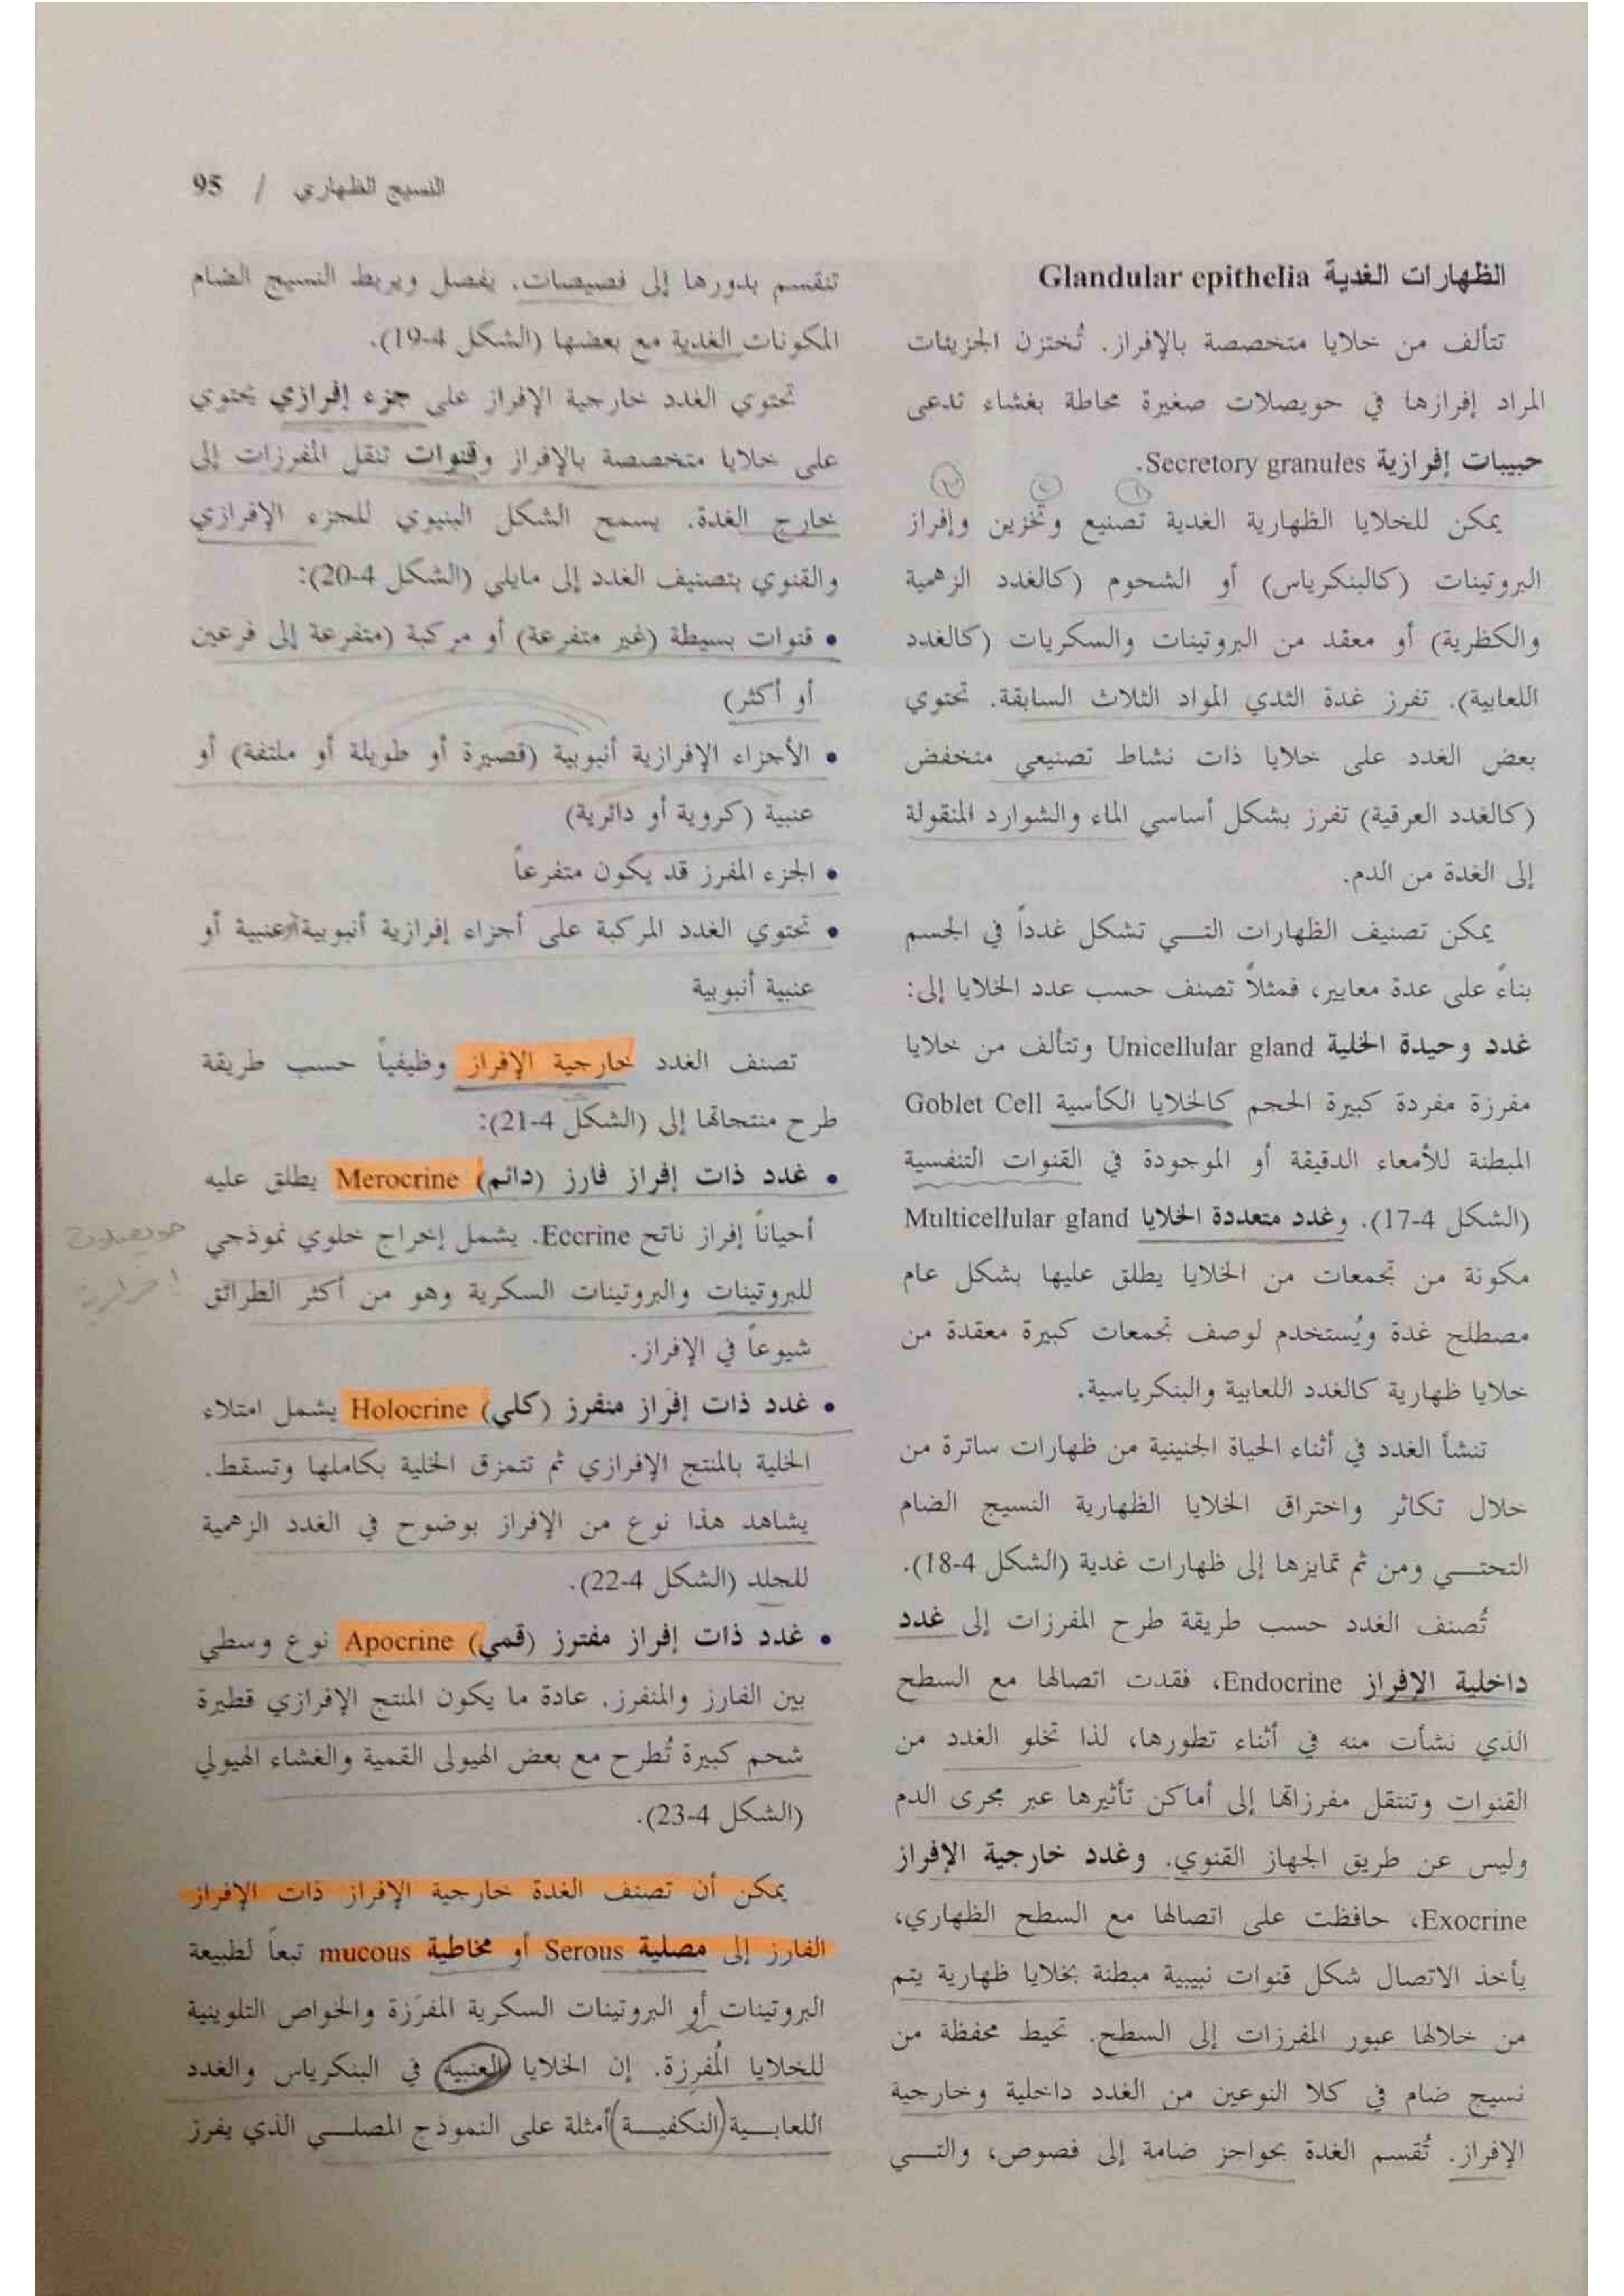 النسيج الظهاري / 95
الظهارات الغدية Glandular epithelia
تتألف من خلايا متخصصة بالإفراز. تُختزن الجزيئات
المراد إفرازها في حويصلات صغيرة محاطة بغشاء تدعى
حبيبات إفرازية Secretory granules.
يمكن للخلايا الظهارية الغدية تصنيع وتخزين وإفراز
البروتينات (كالبنكرياس) أو الشحوم (كالغدد الزهمية
والكظرية) أو معقد من البروتينات والسكريات (كالغدد
اللعابية). تفرز غدة الثدي المواد الثلاث السابقة. تحتوي
بعض الغدد على خلايا ذات نشاط تصنيعي منخفض
(كالغدد العرقية) تفرز بشكل أساسي الماء والشوارد المنقولة
إلى الغدة من الدم.
يمكن تصنيف الظهارات التي تشكل غدداً في الجسم
بناءً على عدة معايير، فمثلاً تصنف حسب عدد الخلايا إلى:
غدد وحيدة الخلية Unicellular gland وتتألف من خلايا
مفرزة مفردة كبيرة الحجم كالخلايا الكأسية Goblet Cell
المبطنة للأمعاء الدقيقة أو الموجودة في القنوات التنفسية
(الشكل 4-17). وغدد متعددة الخلايا Multicellular gland
مكونة من تجمعات من الخلايا يطلق عليها بشكل عام
مصطلح غدة ويُستخدم لوصف تجمعات كبيرة معقدة من
خلايا ظهارية كالغدد اللعابية والبنكرياسية.
تنشأ الغدد في أثناء الحياة الجنينية من ظهارات ساترة من
خلال تكاثر واختراق الخلايا الظهارية النسيج الضام
التحتي ومن ثم تمايزها إلى ظهارات غدية (الشكل 4-18).
تُصنف الغدد حسب طريقة طرح المفرزات إلى غدد
داخلية الإفراز Endocrine، فقدت اتصالها مع السطح
الذي نشأت منه في أثناء تطورها، لذا تخلو الغدد من
القنوات وتنتقل مفرزاتها إلى أماكن تأثيرها عبر مجرى الدم
وليس عن طريق الجهاز القنوي. وغدد خارجية الإفراز
Exocrine، حافظت على اتصالها مع السطح الظهاري،
يأخذ الاتصال شكل قنوات نبيبية مبطنة بخلايا ظهارية يتم
من خلالها عبور المفرزات إلى السطح. تحيط محفظة من
نسيج ضام في كلا النوعين من الغدد داخلية وخارجية
الإفراز. تُقسم الغدة بحواجز ضامة إلى فصوص، والتي
تنقسم بدورها إلى فصيصات. يفصل ويربط النسيج الضام
المكونات الغدية مع بعضها (الشكل 4-19).
تحتوي الغدد خارجية الإفراز على جزء إفرازي يحتوي
على خلايا متخصصة بالإفراز وقنوات تنقل المفرزات إلى
خارج الغدة. يسمح الشكل البنيوي للجزء الإفرازي
والقنوي بتصنيف الغدد إلى مايلي (الشكل 4-20):
• قنوات بسيطة (غير متفرعة) أو مركبة (متفرعة إلى فرعين
أو أكثر)
• الأجزاء الإفرازية أنبوبية (قصيرة أو طويلة أو ملتفة) أو
عنبية (كروية أو دائرية)
• الجزء المفرز قد يكون متفرعاً
• تحتوي الغدد المركبة على أجزاء إفرازية أنبوبية أو عنبية أو
عنبية أنبوبية
تصنف الغدد خارجية الإفراز وظيفياً حسب طريقة
طرح منتجاتها إلى (الشكل 4-21):
• غدد ذات إفراز فارز (دائم) Merocrine يطلق عليه
أحياناً إفراز ناتح Eccrine. يشمل إخراج خلوي نموذجي
للبروتينات والبروتينات السكرية وهو من أكثر الطرائق
شيوعاً في الإفراز.
• غدد ذات إفراز منفرز (كلي) Holocrine يشمل امتلاء
الخلية بالمنتج الإفرازي ثم تتمزق الخلية بكاملها وتسقط.
يشاهد هذا نوع من الإفراز بوضوح في الغدد الزهمية
للجلد (الشكل 4-22).
• غدد ذات إفراز مفترز (قمي) Apocrine نوع وسطي
بين الفارز والمنفرز. عادة ما يكون المنتج الإفرازي قطيرة
شحم كبيرة تُطرح مع بعض الهيولى القمية والغشاء الهيولي
(الشكل 4-23).
يمكن أن تصنف الغدة خارجية الإفراز ذات الإفراز
الفارز إلى مصلية Serous أو مخاطية mucous تبعاً لطبيعة
البروتينات أو البروتينات السكرية المفرَزة والخواص التلوينية
للخلايا المُفرِزة. إن الخلايا العنبية في البنكرياس والغدد
اللعابية (النكفية) أمثلة على النموذج المصلي الذي يفرز